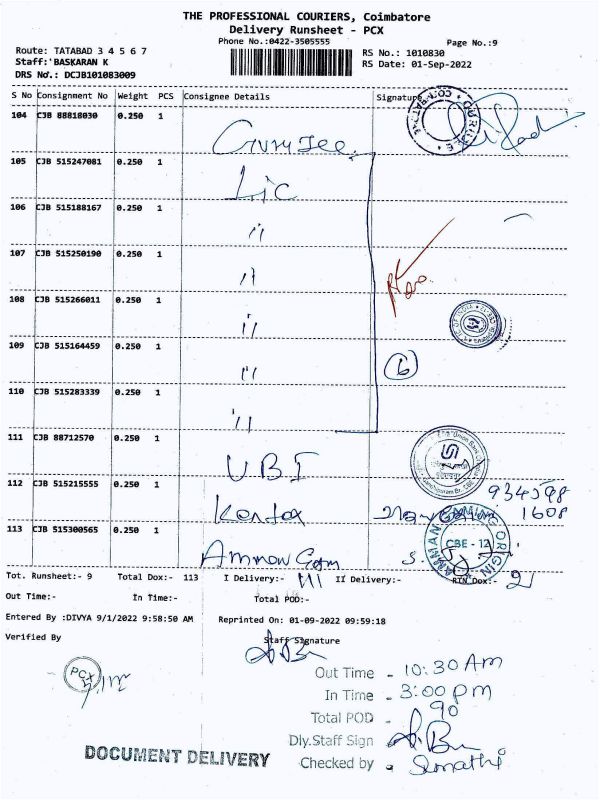 THE PROFESSIONAL COURIERS, Coimbatore
Delivery Runsheet - PCX
Phone No.:0422-3505555
Page No.:9
Route: TATABAD 3 4 5 6 7
RS No.: 1010830
Staff:'BASKARAN K
RS Date: 01-Sep-2022
DRS No.: DCJB101083009
S No Consignment No Weight PCS Consignee Details Signature
104 CJB 88818030 0.250 1
105 CJB 515247081 0.250 1 Lic
106 CJB 515188167 0.250 1 "
107 CJB 515250190 0.250 1 "
108 CJB 515266011 0.250 1 "
109 CJB 515164459 0.250 1 " 6
110 CJB 515283339 0.250 1 "
111 CJB 88712570 0.250 1 UBI
112 CJB 515215555 0.250 1 934598
1608
113 CJB 515300565 0.250 1 AMMAN GAMING ORIGIN CBE - 12
Tot. Runsheet:- 9 Total Dox:- 113 I Delivery:- 111 II Delivery:- RTN Dox:- 2
Out Time:- In Time:- Total POD:-
Entered By :DIVYA 9/1/2022 9:58:50 AM Reprinted On: 01-09-2022 09:59:18
Verified By Staff Signature
PCX
Out Time - 10:30 Am
In Time - 3:00 pm
Total POD - 90
Dly.Staff Sign
Checked by - Sumathi
DOCUMENT DELIVERY